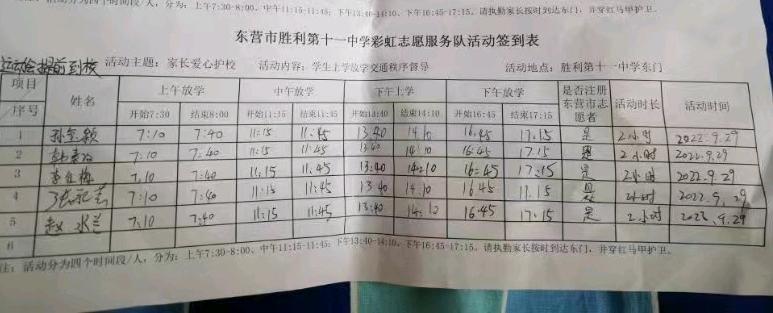 个时间段/人，分为：上午7:30-8:00、中午11:15-11:45、下午13:40-14:10、下午16:45-17:15。请执勤家长按时到达东门，并穿红马甲护卫。
东营市胜利第十一中学彩虹志愿服务队活动签到表
运动会提前到校 活动主题：家长爱心护校 活动内容：学生上学放学交通秩序督导 活动地点：胜利第十一中学东门
项目 姓名 上午放学 中午放学 下午上学 下午放学 是否注册东营市志愿者 活动时长 活动时间
序号 开始7:30 结束8:00 开始11:15 结束11:45 开始13:40 结束14:10 开始16:45 结束17:15
1 7:10 7:40 11:15 11:45 13:40 14:10 16:45 17:15 是 2小时 2022.9.29
2 7:10 7:40 11:15 11:45 13:40 14:10 16:45 17:15 是 2小时 2022.9.29
3 7:10 7:40 11:15 11:45 13:40 14:10 16:45 17:15 是 2小时 2022.9.29
4 7:10 7:40 11:15 11:45 13:40 14:10 16:45 是 2小时 2022.9.29
5 赵 兰 7:10 7:40 11:15 11:45 13:40 14:10 16:45 17:15 是 2小时 9.29
6
注：活动分为四个时间段/人，分为：上午7:30-8:00、中午11:15-11:45、下午13:40-14:10、下午16:45-17:15。请执勤家长按时到达东门，并穿红马甲护卫。